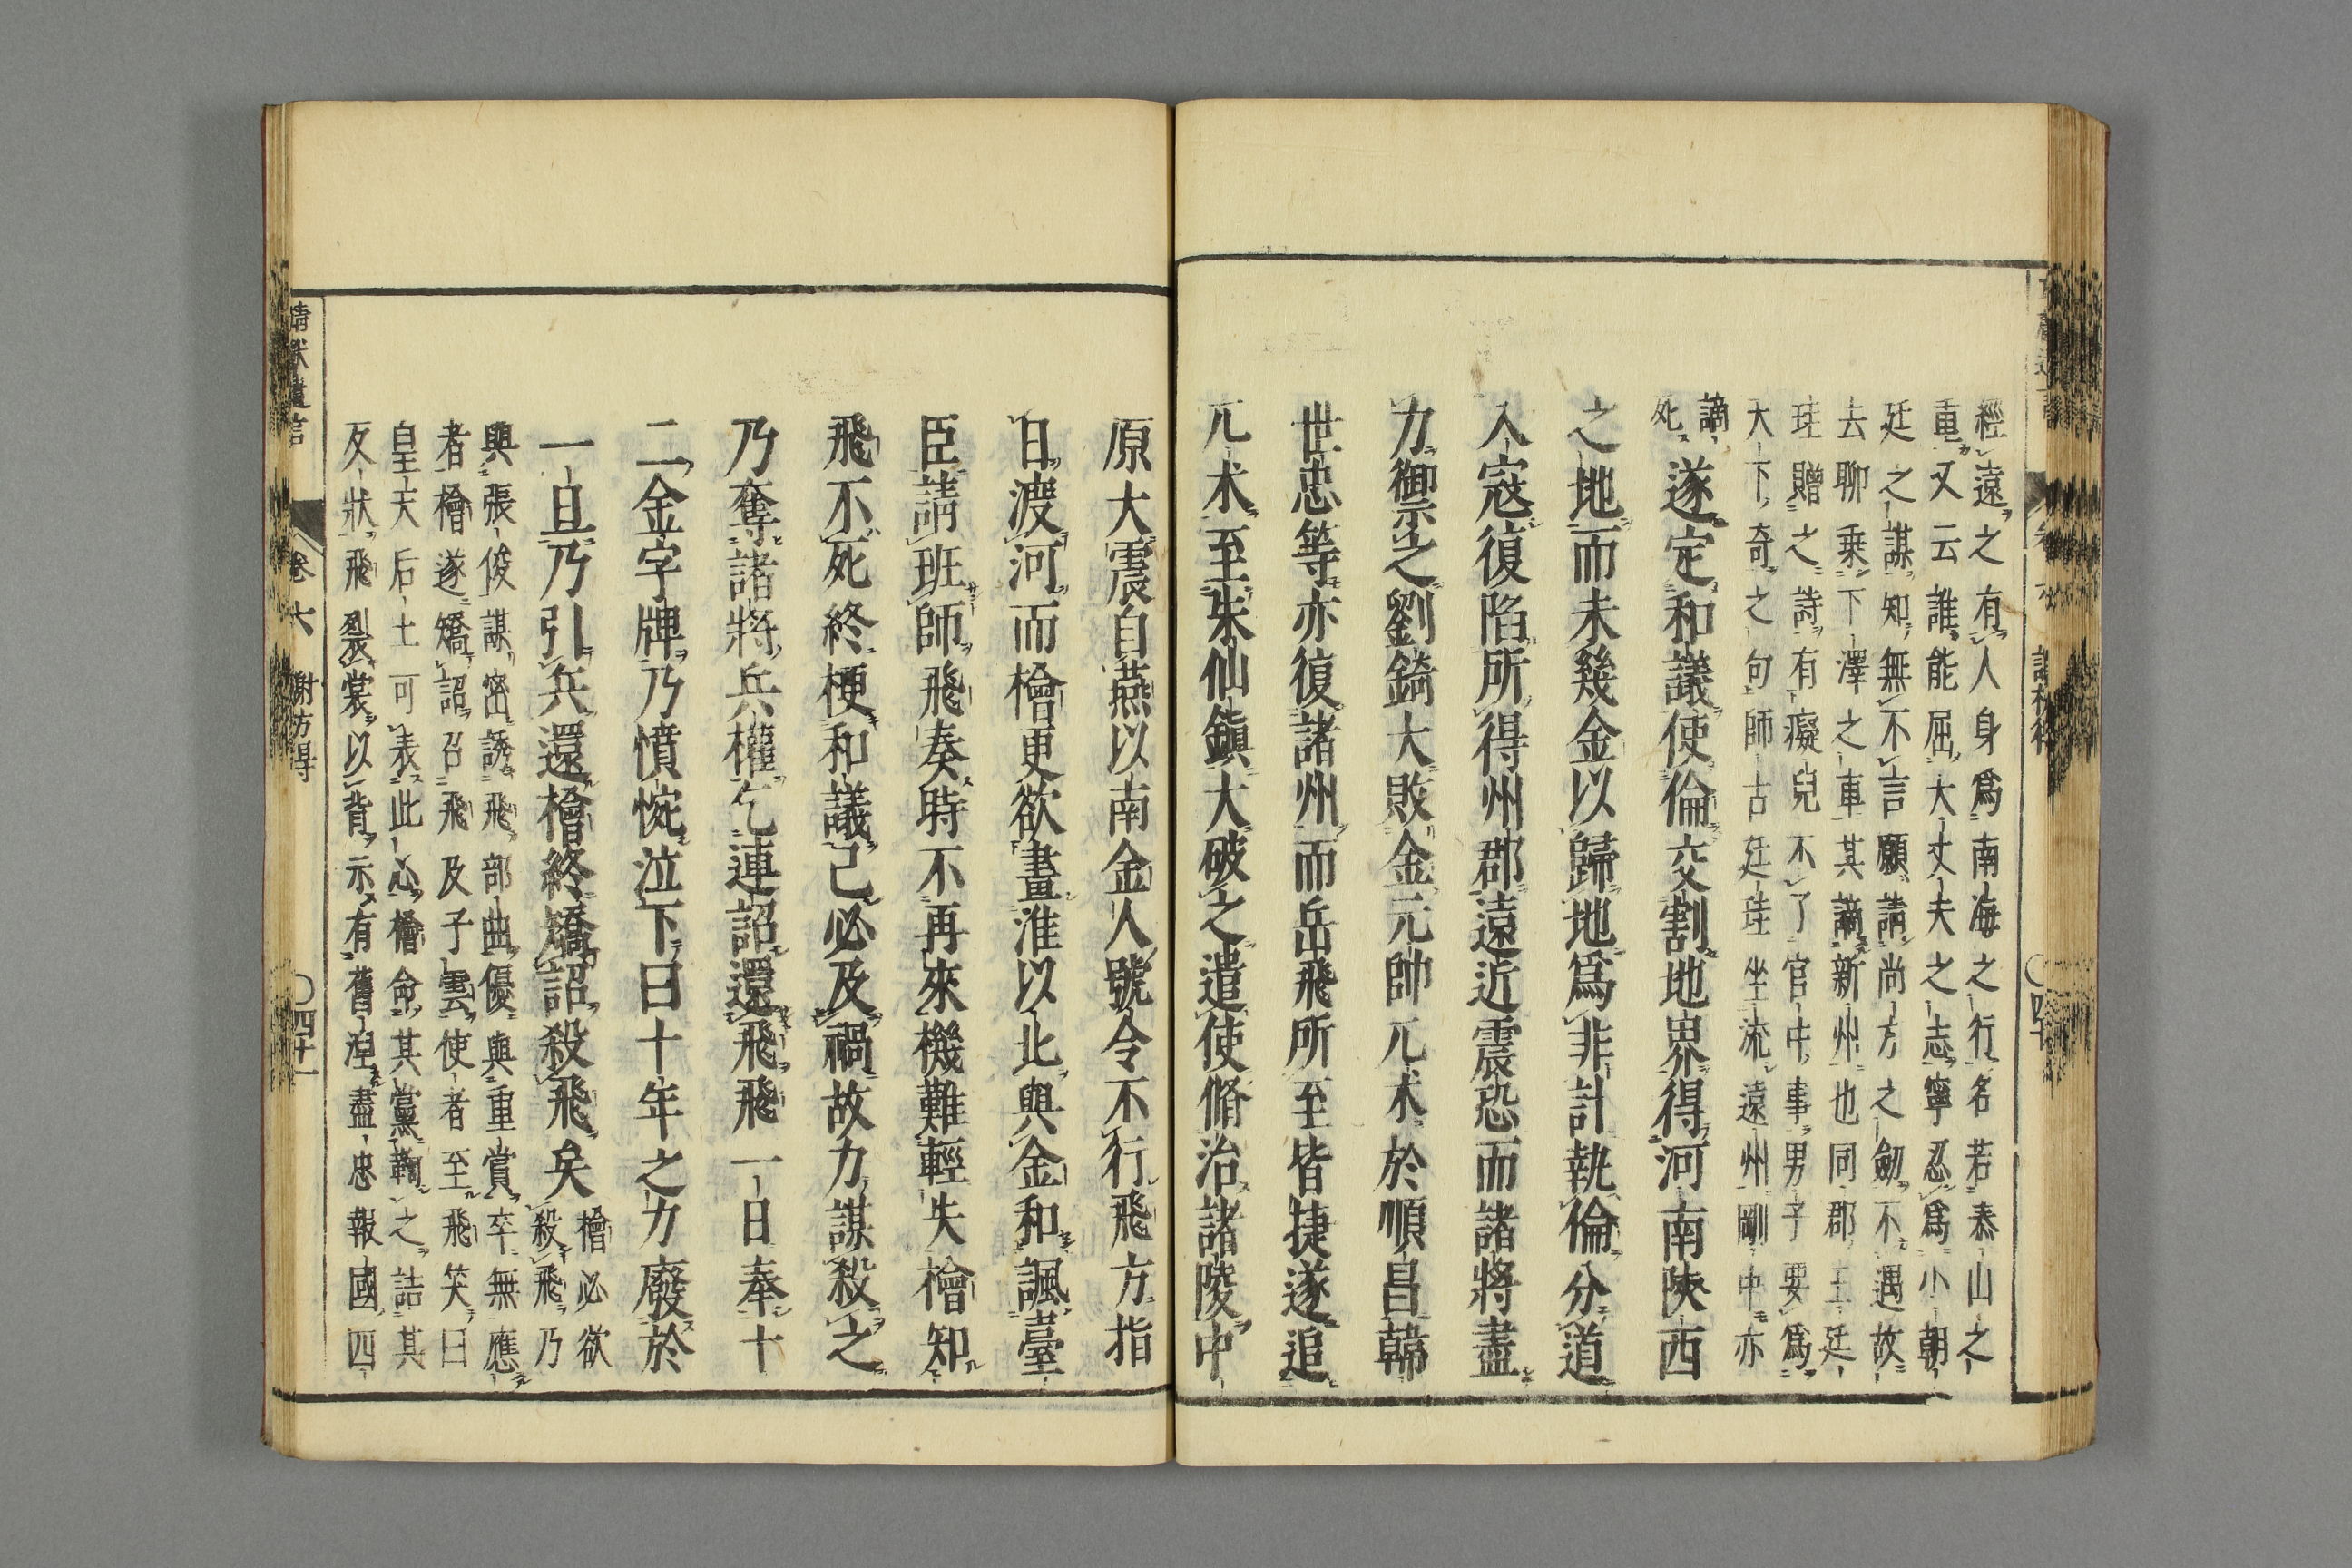 經遠之有人身爲南海之行名若泰山之
重又云誰能屈大丈夫之志寧忍爲小朝
廷之謀知無不言願請尚方之劒不遇故
去聊乘下澤之車其謫新州也同郡王廷
珪贈之詩有癡兒不了官中事男子要爲
天下奇之句師古廷珪坐流遠州剛中亦
謫
死遂定和議使倫交割地界得河南陝西
之地而未幾金以歸地爲非計執倫分道
入寇復陷所得州郡遠近震恐而諸將盡
力禦之劉錡大敗金元帥兀朮於順昌韓
世忠等亦復諸州而岳飛所至皆捷遂追
兀朮至朱仙鎮大破之遣使脩治諸陵中
原大震自燕以南金人號令不行飛方指
日渡河而檜更欲畫淮以北與金和諷臺
臣請班師飛奏時不再來機難輕失檜知
飛不死終梗和議己必及禍故力謀殺之
乃奪諸將兵權乞連詔還飛飛一日奉十
二金字牌乃憤惋泣下曰十年之力廢於
一旦乃引兵還檜終矯詔殺飛矣檜必欲
殺飛乃
與張俊謀密誘飛部曲優與重賞卒無應
者檜遂矯詔召飛及子雲使者至飛笑曰
皇天后土可表此心檜命其黨鞠之詰其
反狀飛裂裳以背示有舊涅盡忠報國四
靖献遺言
卷六
謝枋得
〇四十一